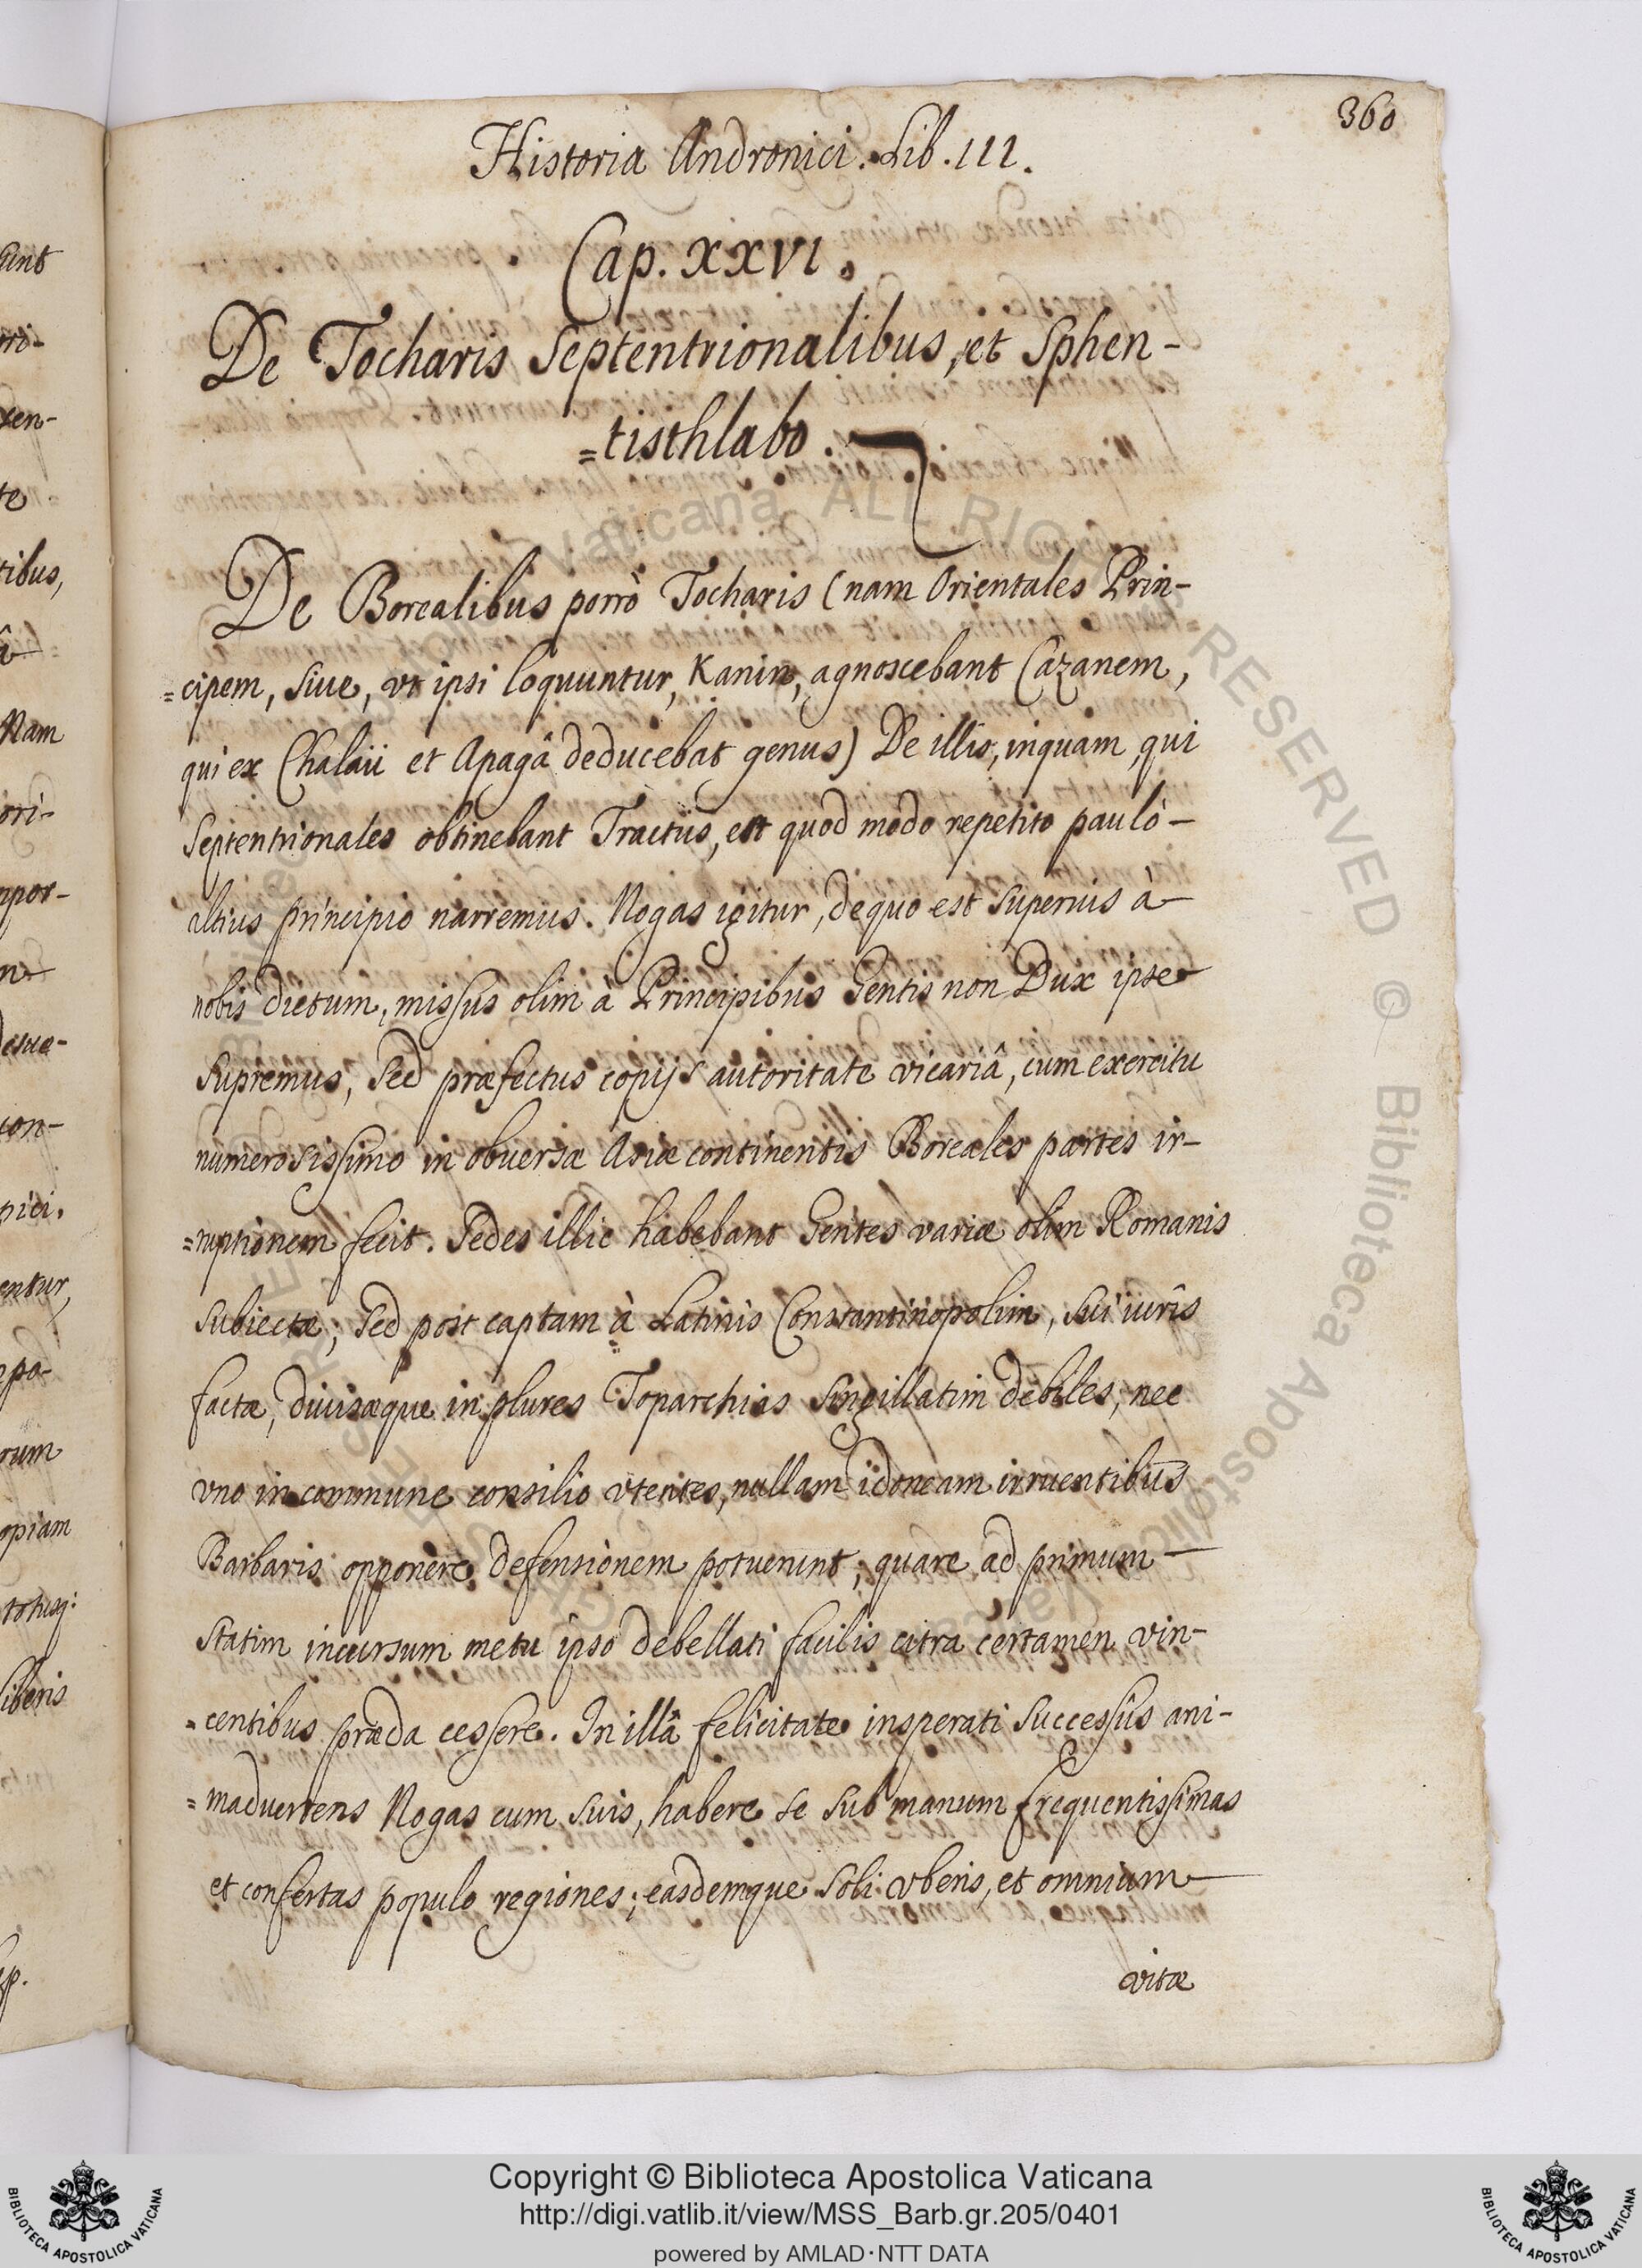 360
Historia Andronici. Lib. III.
Cap. XXVI.
De Tocharis Septentrionalibus, et Sphen-
=tisthlabo.
De Borealibus porrò Tocharis (nam Orientales Prin-
=cipem, siue, vt ipsi loquuntur, Kanin, agnoscebant Cazanem,
qui ex Chalaii et Apagâ deducebat genus) De illis, inquam, qui
Septentrionales obtinebant Tractûs, est quod modo repetito paulò
altius principio narremus. Nogas igitur, de quo est superius à
nobis dictum, missus olim à Principibus Gentis non Dux ipse
supremus, sed præfectus copijs autoritate vicariâ, cum exercitu
numerosissimo in obuersæ Asiæ continentis Boreales partes ir-
=ruptionem fecit. Sedes illic habebant Gentes variæ olim Romanis
subiectæ; sed post captam à Latinis Constantinopolim, sui iuris
factæ, diuisæque in plures Toparchias singillatim debiles, nec
vno in commune consilio vtentes, nullam idoneam irruentibus
Barbaris opponere defensionem potuerunt; quare ad primum
statim incursum metu ipso debellati facilis citra certamen vin-
=centibus præda cessere. In illâ felicitate insperati successûs ani-
=maduertens Nogas cum suis, habere se sub manum frequentissimas
et confertas populo regiones; easdemque soli vberis, et omnium
vitæ
Copyright © Biblioteca Apostolica Vaticana
http://digi.vatlib.it/view/MSS_Barb.gr.205/0401
powered by AMLAD·NTT DATA
BIBLIOTECA APOSTOLICA VATICANA
BIBLIOTECA APOSTOLICA VATICANA